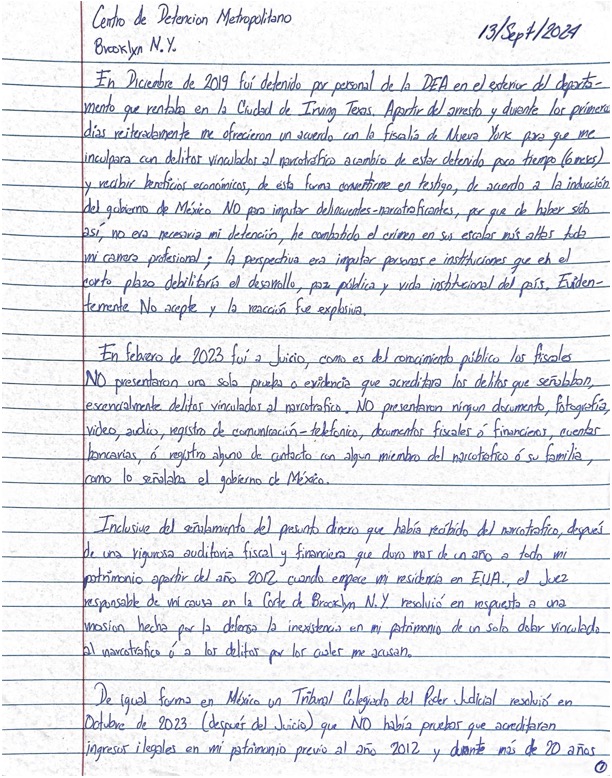 Centro de Detencion Metropolitano
13/Sept/2024
Brooklyn N.Y.
En Diciembre de 2019 fuí detenido por personal de la DEA en el exterior del departa-
mento que rentaba en la Ciudad de Irving Texas. Apartir del arresto y durante los primeros
días reiteradamente me ofrecieron un acuerdo con la fiscalía de Nueva York para que me
inculpara con delitos vinculados al narcotráfico acambio de estar detenido poco tiempo (6 meses)
y recibir beneficios económicos, de esta forma convertirme en testigo, de acuerdo a la inducción
del gobierno de México NO para imputar delincuentes-narcotraficantes, por que de haber sido
así, no era necesaria mi detención, he combatido el crimen en sus escalas más altas toda
mi carrera profesional; la perspectiva era imputar personas e instituciones que en el
corto plazo debilitaría el desarrollo, paz pública y vida institucional del país. Eviden-
temente No acepte y la reacción fue explosiva.
En febrero de 2023 fui a Juicio, como es del conocimiento público los fiscales
NO presentaron una sola prueba o evidencia que acreditara los delitos que señalaban,
escencialmente delitos vinculados al narcotrafico. NO presentaron ningun documento, fotografía,
video, audio, registro de comunicación-telefonico, documentos fiscales ó financieros, cuentas
bancarias, ó registro alguno de contacto con algun miembro del narcotrafico ó su familia,
como lo señalaba el gobierno de México.
Inclusive del señalamiento del presunto dinero que había recibido del narcotrafico, después
de una rigurosa auditoria fiscal y financiera que duro mas de un año a todo mi
patrimonio apartir del año 2012 cuando empece mi residencia en EUA., el Juez
responsable de mi causa en la Corte de Brooklyn N.Y. resolvió en respuesta a una
mosion hecha por la defensa la inexistencia en mi patrimonio de un solo dolar vinculado
al narcotrafico ó a los delitos por los cuales me acusan.
De igual forma en México un Tribunal Colegiado del Poder Judicial resolvió en
Octubre de 2023 (después del Juicio) que NO había pruebas que acreditaran
ingresos ilegales en mi patrimonio previo al año 2012 y durante más de 20 años
1